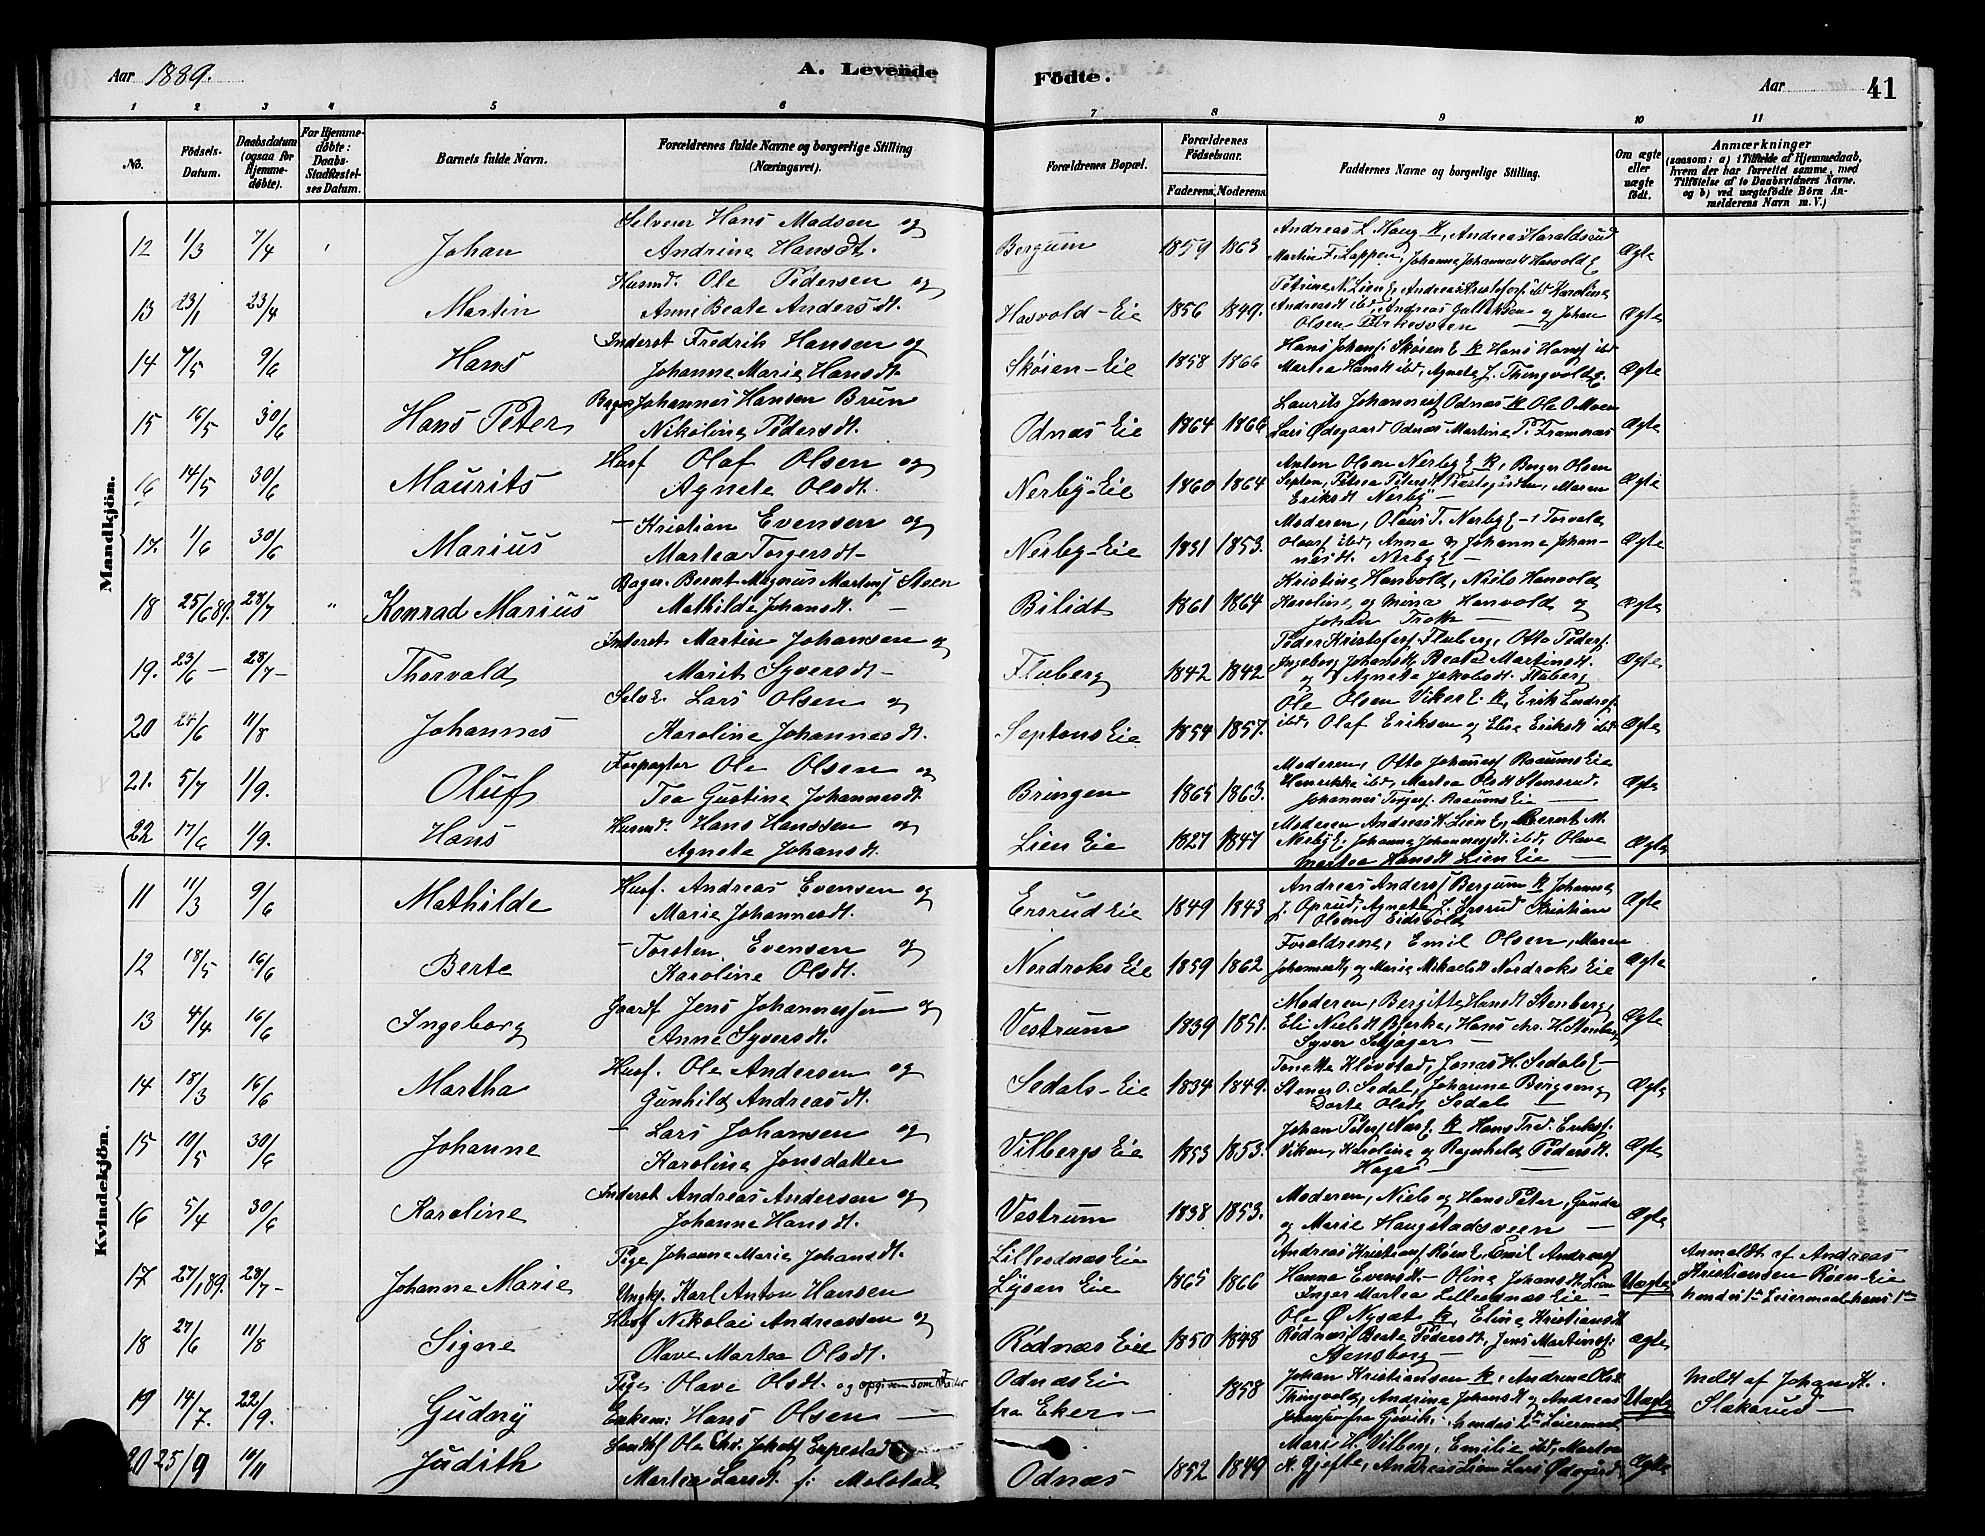 Aar 1889. A. Levende Födte. Aar 41
1 2 3 4 5 6 7 8 9 10 11
No. Födsels-Datum. Daabsdatum (ogsaa for Hjemme-døbte). For Hjemme-døbte: Daabs-Stadfæstel-ses Datum. Barnets fulde Navn. Forældrenes fulde Navne og borgerlige Stilling (Næringsvei). Forældrenes Bopæl. Forældrenes Fødselsaar. Faderens. Moderens. Faddernes Navne og borgerlige Stilling. Om ægte eller uægte født. Anmærkninger (saasom: a) i Tilfælde af Hjemmedaab, hvem der har forrettet samme, med Tilføielse af to Daabsvidners Navne, og b) ved uægtefödte Börn Anmelderens Navn m. V.)
Mandkjön.
12 1/3 7/4 Johan Selveier Hans Madsen og Andrine Hansdt. Bergum 1859 1863 Andreas L. Haug K, Andreas Haraldsrud Martin F. Lappen, Johanne Johannesdt Hasvold E Ægte
13 23/1 23/4 Martin Husmd. Ole Pedersen og Anne Beate Andersdt. Hasvold-Eie 1856 1849. Andreasdt ibd, Andreas Gulliksen og Johan Olsen Ægte
14 7/5 9/6 Hans Inderst Fredrik Hansen og Johanne Marie Hansdt. Skøien-Eie 1858 1866 Hans Johans. Skøien E K Hans Hans ibd Martea Hansdt ibd, Agnete J. Thingvold E. Ægte
15 16/5 30/6 Hans Peter Bager Johannes Hansen Brun Nikoline Pedersdt. Odnæs Eie 1864 1866 Laurits Johannes Odnæs K Ole O. Moen Lars Ødegaard Odnæs Martine P. Framnæs Ægte
16 14/5 30/6 Maurits Husf Olaf Olsen og Agnete Olsdt. Nerby-Eie 1860 1864 Anton Olsen Nerby E K, Berger Olsen Septon, Petrea Pedersdt Præstegården, Maren Eriksdt Nerby Ægte
17. 1/6 30/6 Marius – Kristian Evensen og Martea Torgersdt – Nerby-Eie 1831 1853. Moderen, Olaus T. Nerby E – Torvald Olaus ibd, Anna og Johanne Johannesdt. Nerby E – Ægte
18 25/6 89. 28/7 " Konrad Marius Bager. Bernt Magnus Martins Steen Mathilde Johansdt. – Bilidt 1861 1864 Kristine Hasvold, Niels Hasvold Karoline og Mina Hasvold og Johan Ægte
19. 23/6 – 28/7 – Thorvald Inderst Martin Johansen og Marit Syversdt – Fluberg 1842 1842 Peder Kristofers Fluberg, Otto Peders. Ingeborg Johansdt Beate Martinsdt. og Agnete Jakobsdt. Fluberg Ægte
20 24/6 11/8 Johannes Selve. Lars Olsen og Karoline Johannesdt. Septons Eie 1854 1857. Ole Olsen Viker E. K, Erik Endres. ibd, Olaf Eriksen og Elise Eriksdt ibd Ægte
21. 5/7 1/9. Oluf Forpagter Ole Olsen og Tea Gustine Johannesdt. Bringen 1865 1863. Moderen, Otto Johannes Raaums Eie Henrikke ibd, Martea Olsdt Stensrud. Johannes Torges. Raaums Eie Ægte
22 17/6 1/9. Hans Husmd. Hans Hanssen og Agnete Johansdt. Lien Eie 1827 1847 Moderen Andreas H. Lien E, Bernt M. Nerby E, Johanne Johannesdt. ibd, Olave Martea Hansdt Lien Eie – Ægte
Kvindekjön.
11 11/3 9/6 Mathilde Husf. Andreas Evensen og Marie Johannesdt. Ersrud Eie 1849 1843 Andreas Anders Bergum K Johanne J. Oprud, Agnete J. Ersrud Kristian Olsen Eidsvold Ægte
12 18/5 16/6 Berte – Torsten Evensen og Karoline Olsdt. Nordroks Eie 1859 1862 Forældrene, Emil Olsen, Maren Johannesdt, og Marie Mikaelsdt Nordroks Eie Ægte
13 4/4 16/6 Ingeborg Gaardf Jens Johannessen og Anne Syversdt. Vestrum 1839 1851. Moderen, Bergitte Hansdt Stenberg, Eli Nielsdt Bjerke, Hans Chr. H. Stenberg Syver Ægte
14 18/3 16/6 Martha Husf. Ole Andersen og Gunhild Andreasdt. Sedals-Eie 1834 1849. Tonette Kløvstad, Jonas H. Sedal E – Stener O. Sedal, Johanne Bergseng Dorte Olsdt Sedal – Ægte
15 10/5 30/6 Johanne – Lars Johansen og Karoline Jonsdatter Vilbergs Eie 1853 1853. Johan Peters Aas E. K Hans Fred. Eriks. Viken, Karoline og Ragnhild Pedersdt. Haga – Ægte
16 5/4 30/6 Karoline Inderst Andreas Andersen og Johanne Hansdt. Vestrum 1838 1853. Moderen, Niels og Hans Peter, Gunda og Marie Haugstadsveen – Ægte
17 27/1 89. 28/7 – Johanne Marie Pige Johanne Marie Johansdt. Ungk. Karl Anton Hansen Lillesdnæs Eie Lysen Eie 1865 1866 Andreas Kristians Røen E, Emil Andreas Hanna Evensdt – Oline Johansdt. Lien Inger Martea Lilleodnæs Eie – Uægte Anmeldt af Andreas Kristiansen Røen-Eie hendes 1ste Leiermaal hans 1ste
18 27/6 11/8 Signe Husf Nikolai Andreassen og Olave Martea Olsdt. Rødnæs Eie 1850 1848 Ole Ø Nysæt K, Eline Kristiansdt Rødnæs, Berte Pedersdt, Jens Martins. Stensborg – ægte
19 14/7. 22/9. Gudny Pige Olave Olsdt. og opgiven som Fader Enkem: Hans Olsen Odnæs Eie fra Eker – 1858 Johan Kristiansen K, Andrine Olsdt Thingvold, Andrine Johansdt og Andreas fra Gjøvik. hendes 2det Leiermaal Uægte Meldt af Johan K. Slaasrud –
20 25/9 10/11 Judith Landh. Ole Chr. Johans Erpestad Martea Larsdt f: Molstad Odnæs 1852 1849 Mari H. Vilberg, Emilie ibd, Martea Andreas Lien Lars Ødegård Ægte